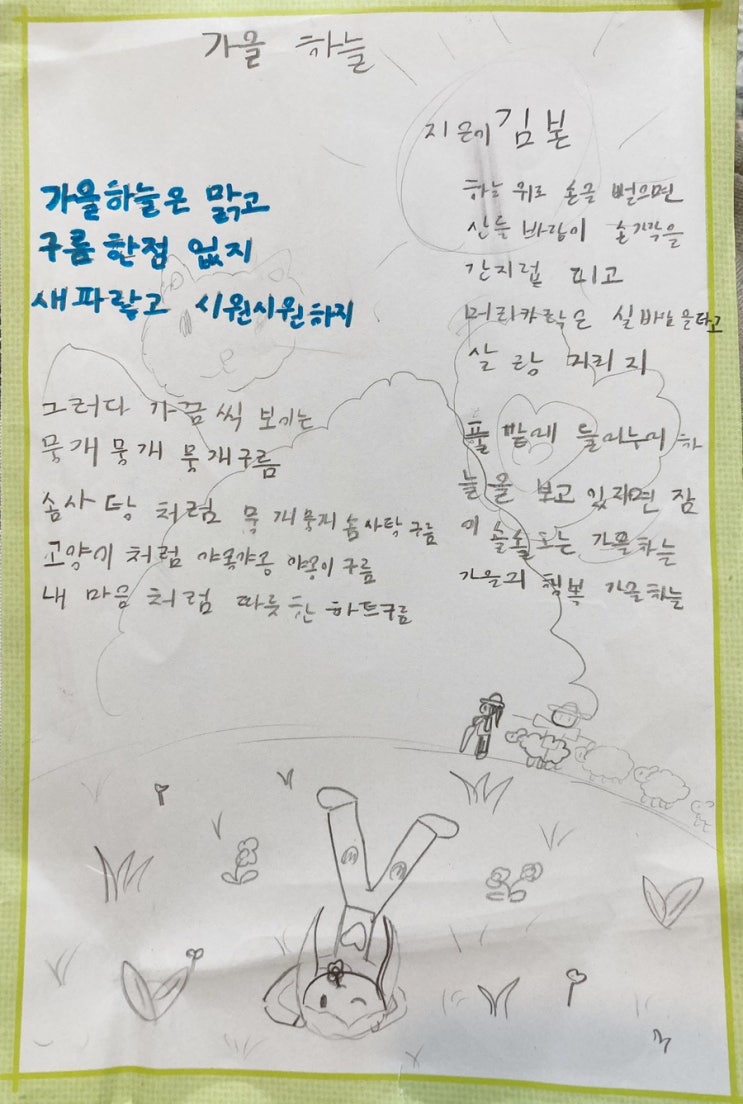 가을 하늘
지은이 김본
가을하늘은 맑고
구름 한점 없지
새파랗고 시원시원하지
그러다 가끔씩 보이는
뭉게 뭉게 뭉게구름
솜사탕 처럼 뭉게뭉게 솜사탕 구름
고양이 처럼 야옹야옹 야옹이 구름
내 마음 처럼 따뜻한 하트구름
하늘 위로 손을 뻗으면
산들 바람이 손가락을
간지럽 피고
머리카락은 실바람을타고
살랑 거리지
풀 밭에 들어누어 하
늘을 보고 있자면 잠
이 솔솔 오는 가을하늘
가을의 행복 가을하늘